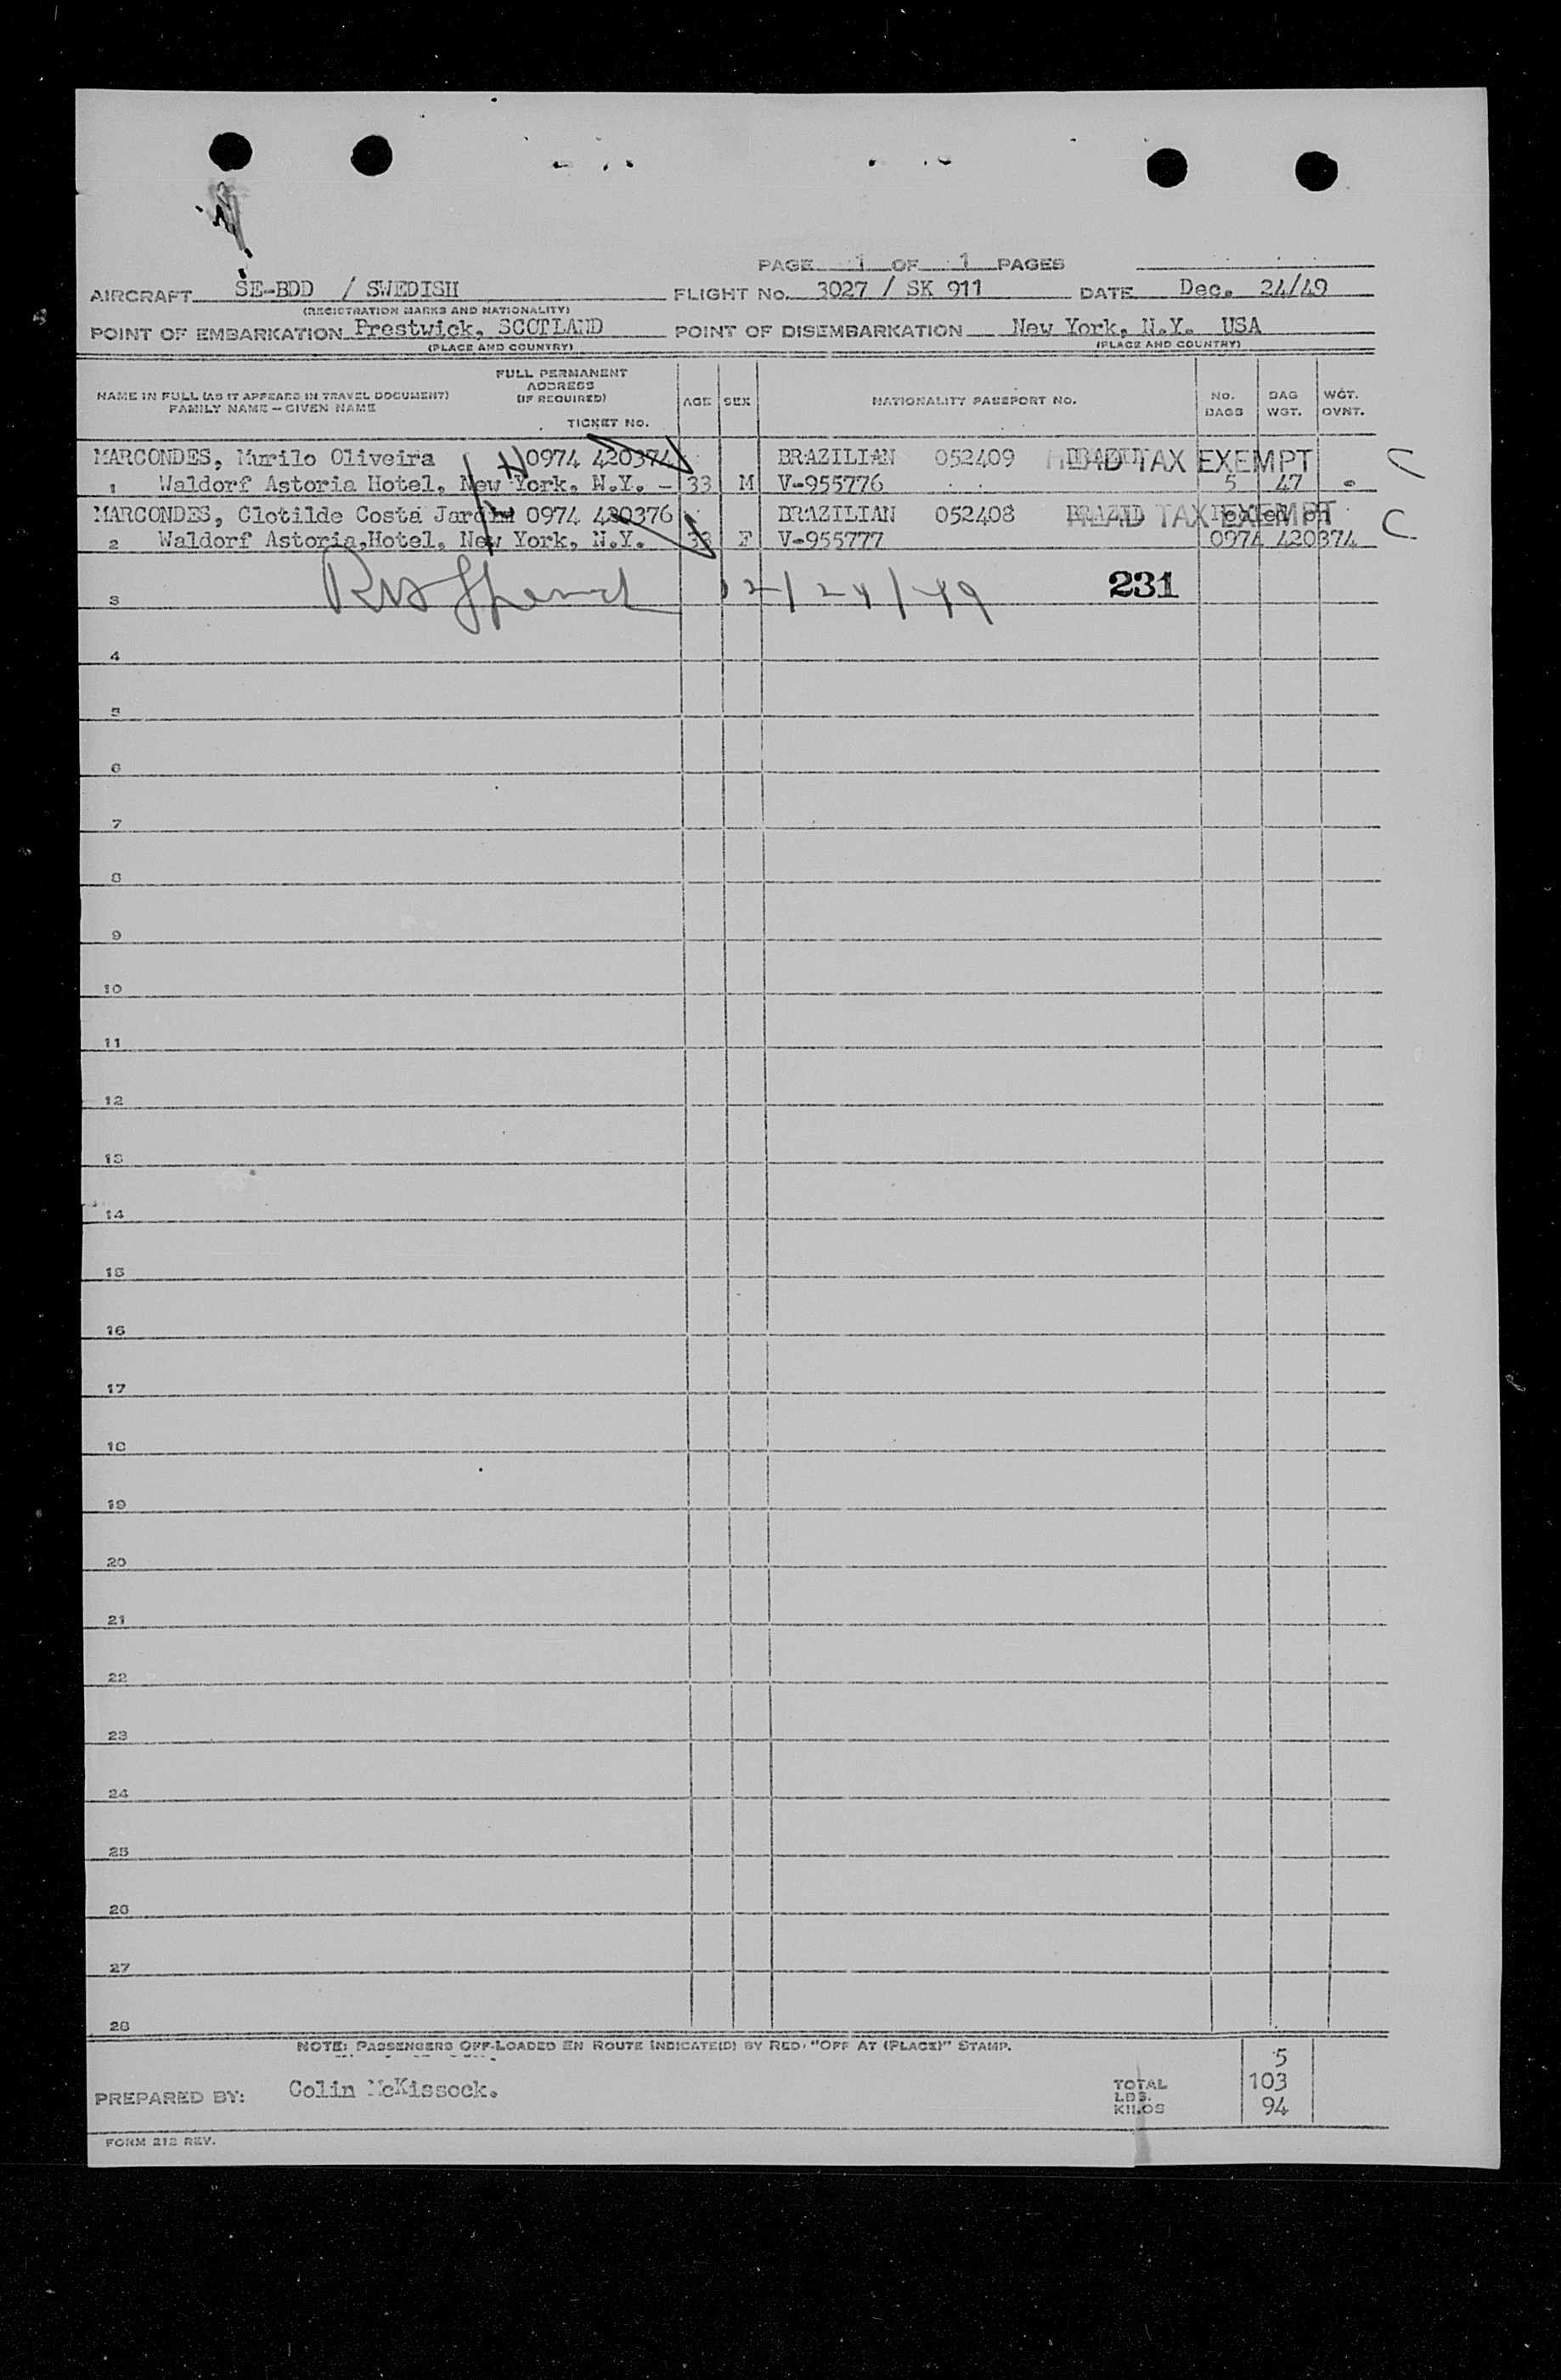 PAGE 1 OF 1 PAGES
AIRCRAFT SE-BDD / SWEDISH FLIGHT No. 3027 / SK 911 DATE Dec. 24/49
(REGISTRATION MARKS AND NATIONALITY)
POINT OF EMBARKATION Prestwick, SCOTLAND POINT OF DISEMBARKATION New York, N.Y. USA
(PLACE AND COUNTRY) (PLACE AND COUNTRY)
NAME IN FULL (AS IT APPEARS IN TRAVEL DOCUMENT) FULL PERMANENT ADDRESS (IF REQUIRED) AGE SEX NATIONALITY PASSPORT No. No. BAG WGT.
FAMILY NAME - GIVEN NAME TICKET No. BAGS WGT. OVNT.
MARCONDES, Murilo Oliveira 0974 420374 BRAZILIAN 052409 HEAD TAX EXEMPT
1 Waldorf Astoria Hotel, New York, N.Y. - 33 M V-955776 5 47
MARCONDES, Clotilde Costa Jardim 0974 420376 BRAZILIAN 052408 BRAZIL HEAD TAX EXEMPT
2 Waldorf Astoria, Hotel, New York, N.Y. 33 F V-955777 0974 420374
3 12/24/49 231
4
5
6
7
8
9
10
11
12
13
14
15
16
17
18
19
20
21
22
23
24
25
26
27
28
NOTE: PASSENGERS OFF-LOADED EN ROUTE INDICATE(D) BY RED, "OFF AT (PLACE)" STAMP.
5
PREPARED BY: Colin McKissock. TOTAL 103
LBS.
KILOS 94
FORM 212 REV.